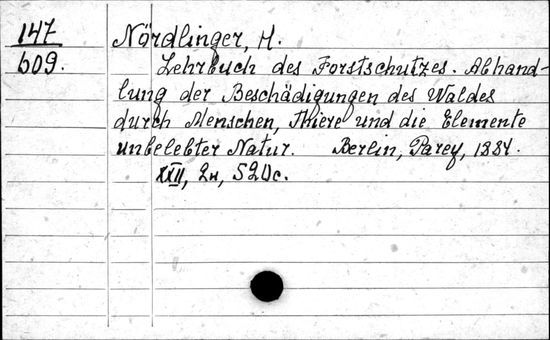 147
609.
Nördlinger, H.
Lehrbuch des Forstschutzes. Abhand-
lung der Beschädigungen des Waldes
durch Menschen, Thiere und die Elemente
unbelebter Natur. Berlin, Parey, 1884.
XXII, 2н, 520с.